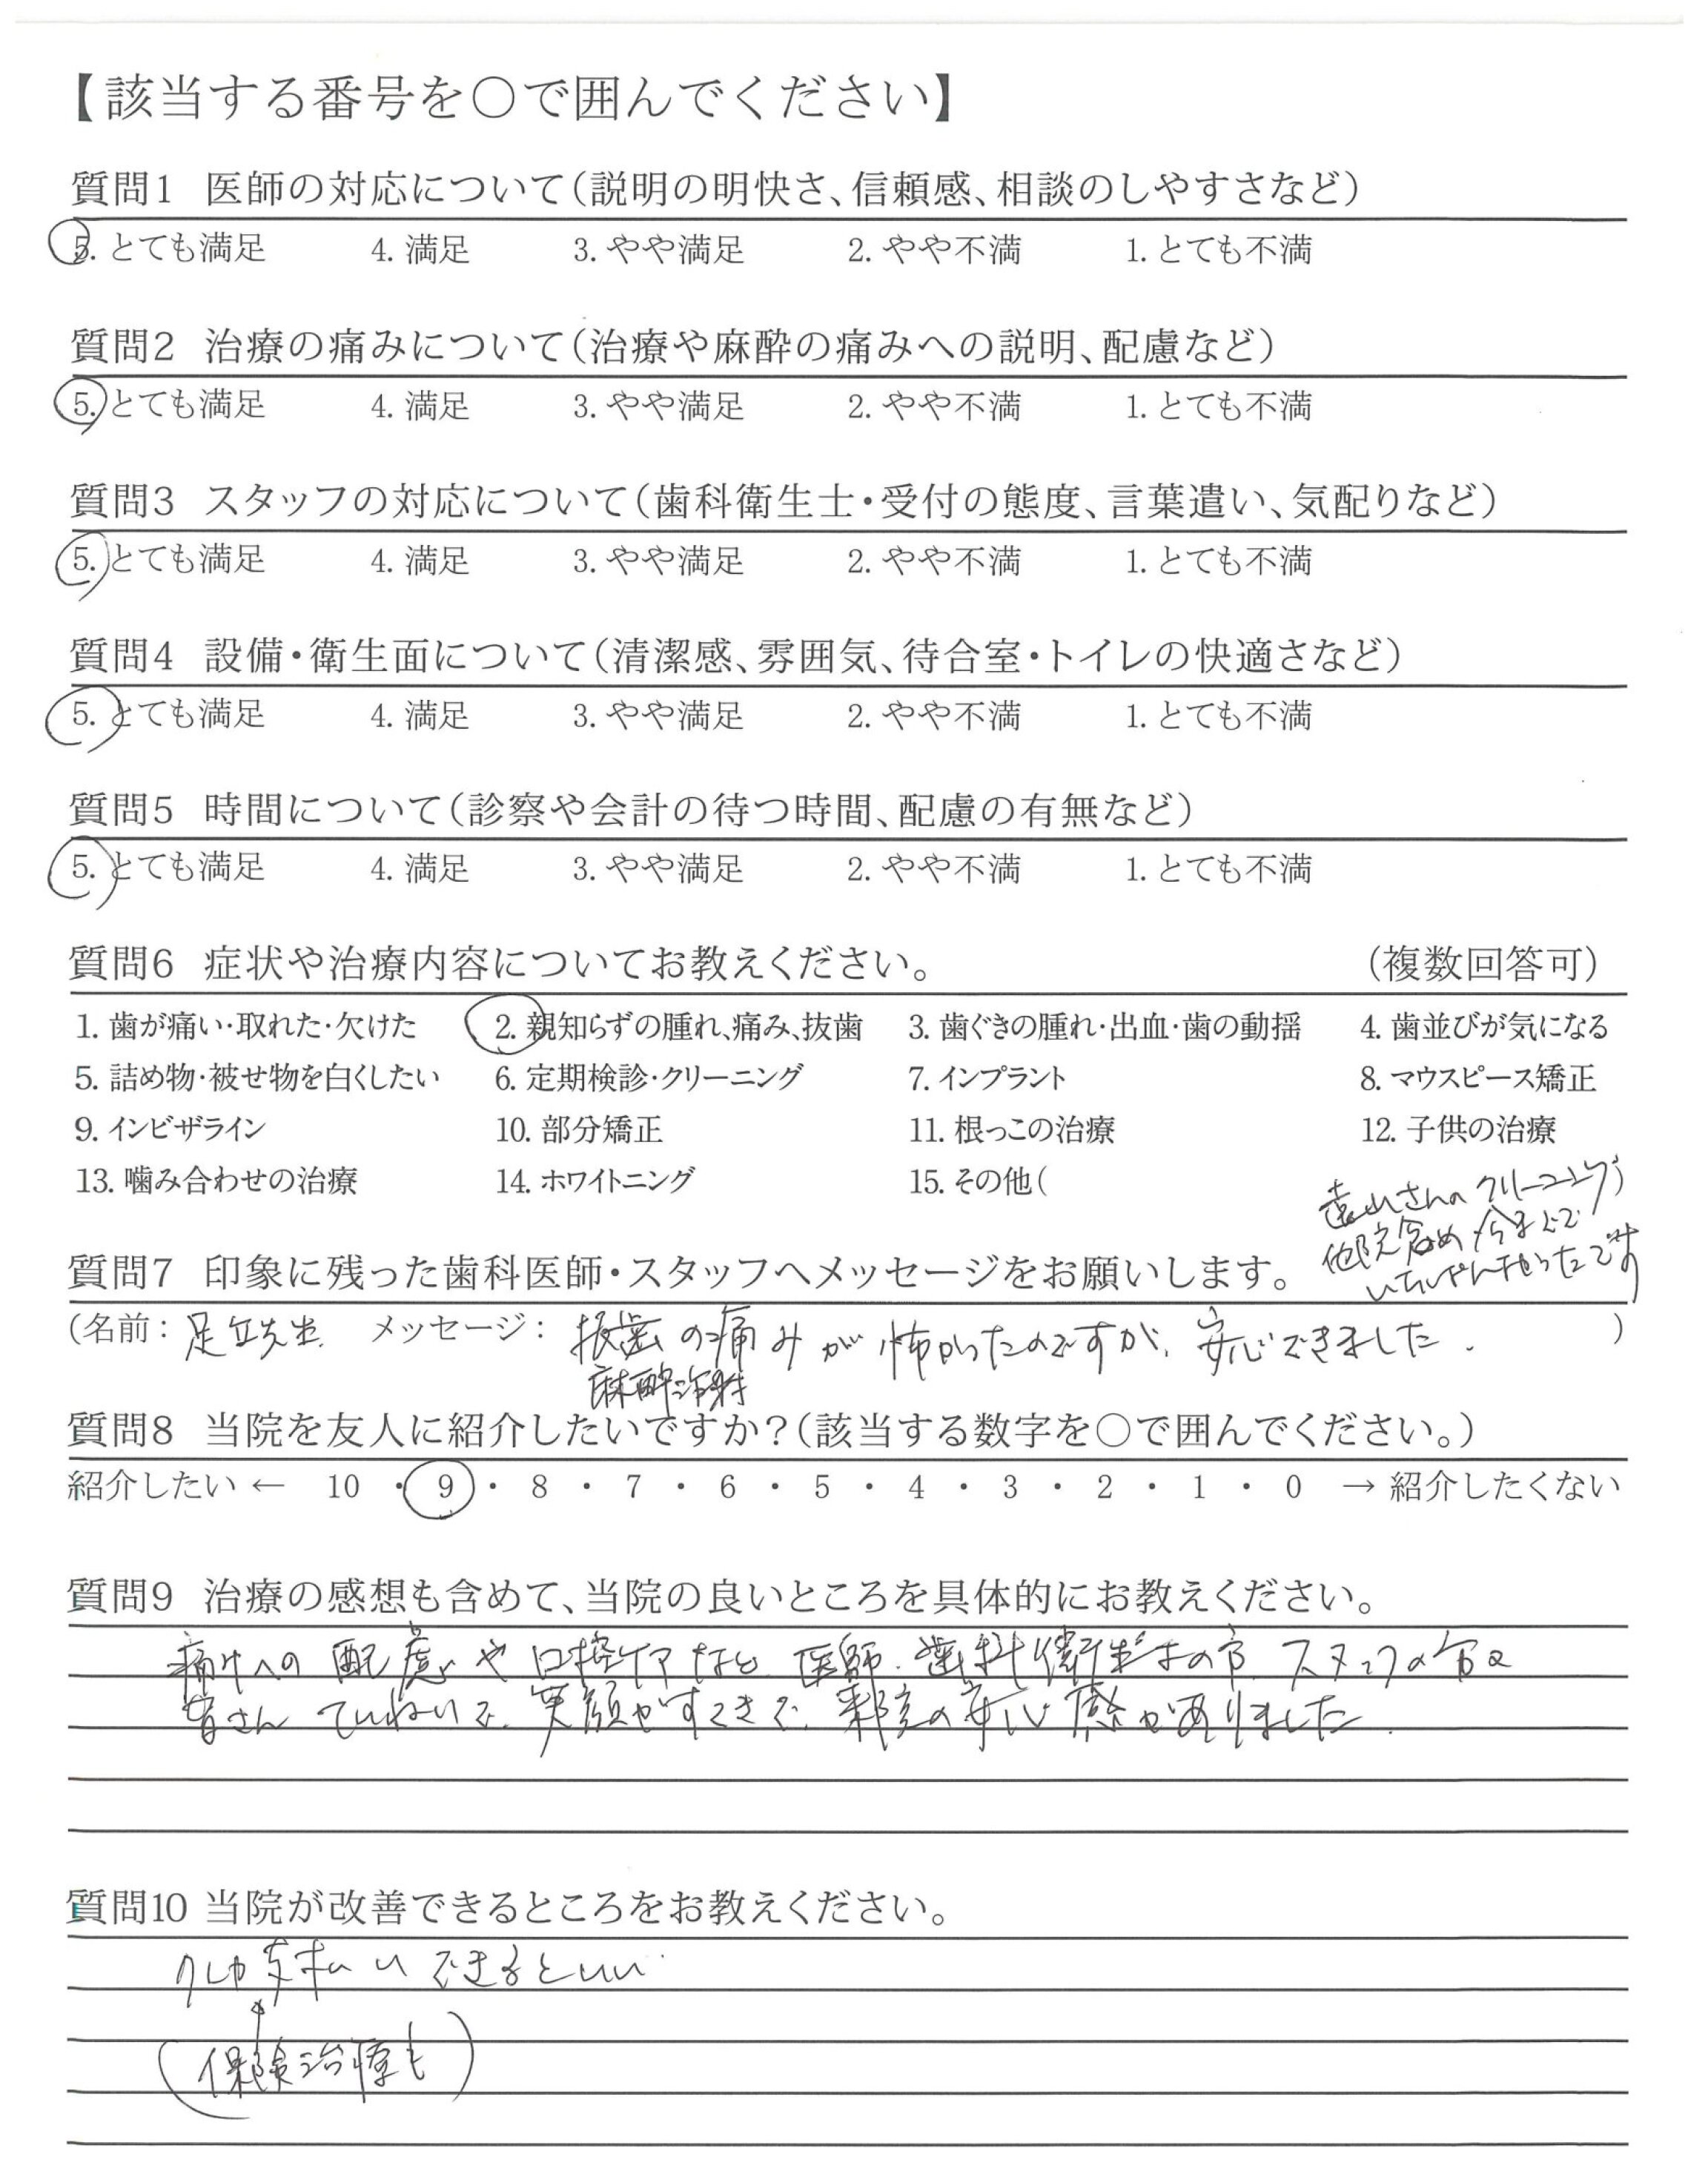 【該当する番号を○で囲んでください】
質問1 医師の対応について(説明の明快さ、信頼感、相談のしやすさなど)
5. とても満足 4. 満足 3. やや満足 2. やや不満 1. とても不満
質問2 治療の痛みについて(治療や麻酔の痛みへの説明、配慮など)
5. とても満足 4. 満足 3. やや満足 2. やや不満 1. とても不満
質問3 スタッフの対応について(歯科衛生士・受付の態度、言葉遣い、気配りなど)
5. とても満足 4. 満足 3. やや満足 2. やや不満 1. とても不満
質問4 設備・衛生面について(清潔感、雰囲気、待合室・トイレの快適さなど)
5. とても満足 4. 満足 3. やや満足 2. やや不満 1. とても不満
質問5 時間について(診察や会計の待つ時間、配慮の有無など)
5. とても満足 4. 満足 3. やや満足 2. やや不満 1. とても不満
質問6 症状や治療内容についてお教えください。 (複数回答可)
1. 歯が痛い・取れた・欠けた 2. 親知らずの腫れ、痛み、抜歯 3. 歯ぐきの腫れ・出血・歯の動揺 4. 歯並びが気になる
5. 詰め物・被せ物を白くしたい 6. 定期検診・クリーニング 7. インプラント 8. マウスピース矯正
9. インビザライン 10. 部分矯正 11. 根っこの治療 12. 子供の治療
13. 噛み合わせの治療 14. ホワイトニング 15. その他( )
遠山さんのクリーニング
他院含め今までで
いちばんよかったです
質問7 印象に残った歯科医師・スタッフへメッセージをお願いします。
(名前: 足立先生 メッセージ: 抜歯の痛みが怖かったのですが、安心できました. )
麻酔注射
質問8 当院を友人に紹介したいですか?(該当する数字を○で囲んでください。)
紹介したい ← 10 ・ 9 ・ 8 ・ 7 ・ 6 ・ 5 ・ 4 ・ 3 ・ 2 ・ 1 ・ 0 → 紹介したくない
質問9 治療の感想も含めて、当院の良いところを具体的にお教えください。
痛みへの配慮や口腔ケアなど 医師.歯科衛生士の方.スタッフの方々
皆さんていねいで.笑顔がすてきで.来院の安心感がありました.
質問10 当院が改善できるところをお教えください。
クレカ支払いできるといい
(保険治療も)